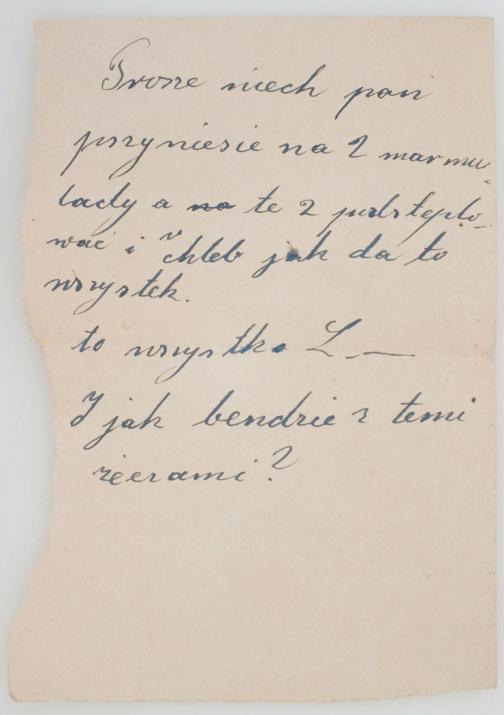 Prosze niech pan
przyniesie na 2 marmu-
lady a na te 2 podsteplo-
wać i chleb jak da to
wszystek.
to wszystko L.—
I jak bendzie z temi